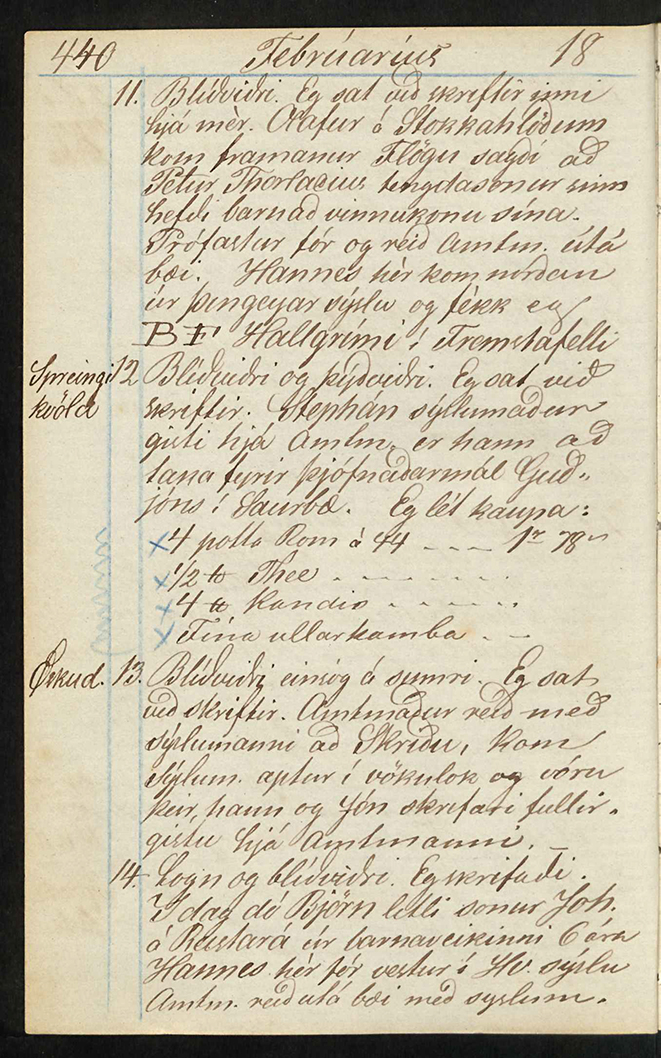 440 Febrúaríus 18
11. Blíðviðri. Eg sat við skriftir inni
hjá mér. Ólafur á Stokkahlöðum
kom framanur Flögu sagði að
Petur Thorlacius tengdasonur sinn
hefði barnað vinnukonu sína.
Prófastur fór og reið Amtm. útá
bæi. Hannes hér kom norðan
úr þingeyar sýslu og fékk eg
BF Hallgrími í Fremstafelli
Spreingi 12 Blíðviðri og þýðviðri. Eg sat við
kvöld skriftir. Stephán sýslumaður
gisti hjá Amtm. er hann að
taka fyrir þjófnaðarmál Guð„
jóns í Saurbæ. Eg lét kaupa:
x 4 potta Rom á 44 - - - - 1r 78s
x 1/2 tt Thee - - - - - -
x 4 tt Kandis - - - - - -
x Fína ullarkamba - -
Öskud. 13. Blíðviðri einsog á sumri. Eg sat
við skriftir. Amtmaður reið með
sýslumanni að Skriðu, kom
sýslum. aptur í vökulok og vóru
þeir, hann og Jón skrifari fullir.
gistu hjá Amtmanni. -
14. Logn og blíðviðri. Eg skrifaði.
I dag dó Björn litli sonur Joh.
á Rastará úr barnaveikinni 6 ára
Hannes hér fór vestur í Hv. sýslu
Amtm. reið útá bæi með syslum.